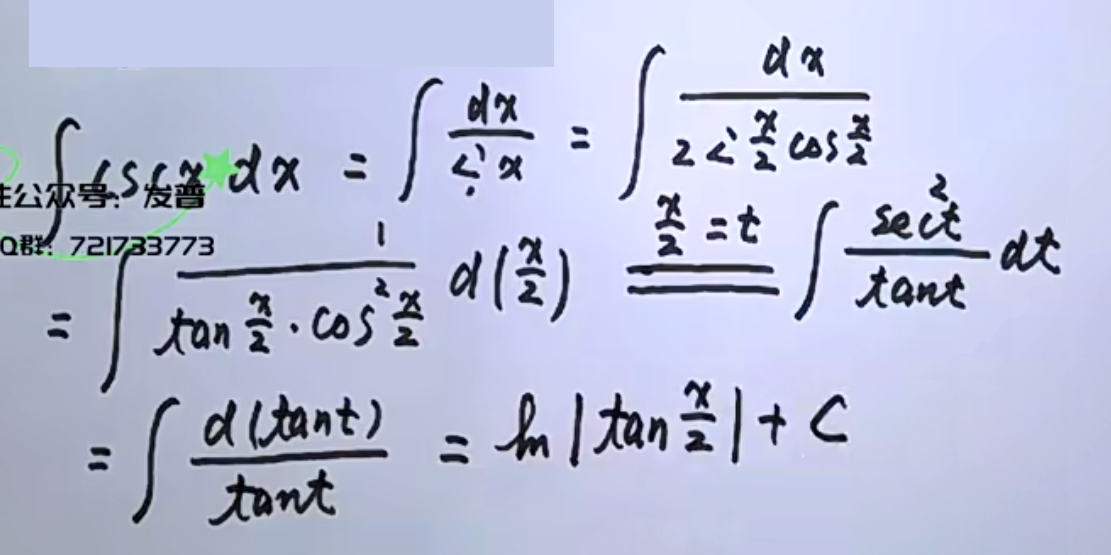 ∫ csc x dx = ∫ dx / sin x = ∫ dx / (2 sin x/2 cos x/2)
性公众号: 发普
Q群: 721733773
= ∫ 1 / (tan x/2 · cos² x/2) d(x/2) x/2 = t ∫ sec²t / tant dt
= ∫ d(tant) / tant = ln |tan x/2| + C